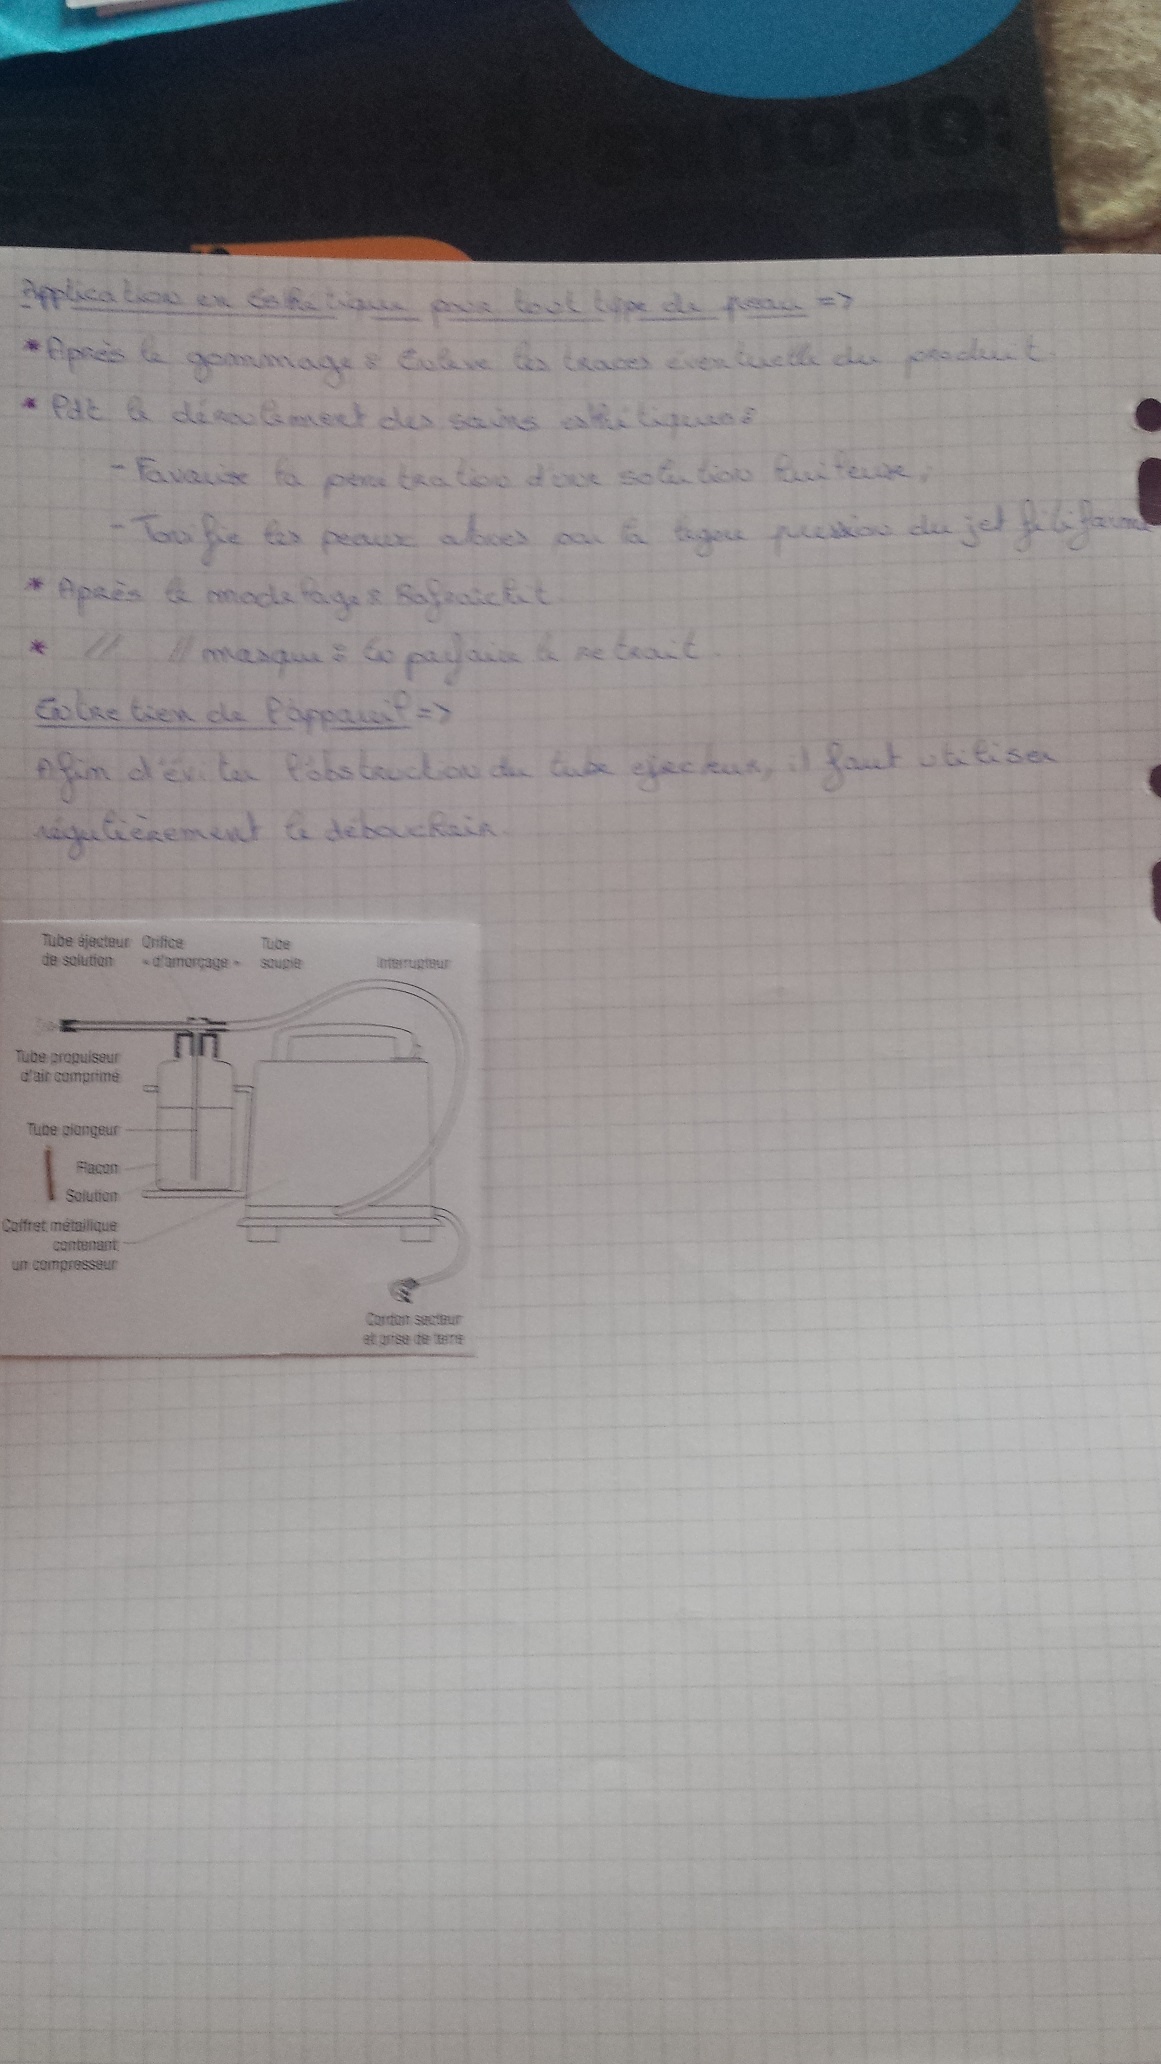 Application en Esthétique pour tout type de peau =>
* Après le gommage : Enlève les traces eventuelle du produit
* Pdt le déroulement des soins esthétiques :
- Favorise la pénétration d'une solution traiteuse,
- Tonifie les peaux atones par la légère pression du jet filiforme
* Après le modelage : Rafraichit
* // // masque : En parfaire le retrait.
Entretien de l'appareil =>
Afin d'éviter l'obstruction du tube ejecteur, il faut utiliser
régulièrement le débouchoir
Tube éjecteur de solution
Orifice « d'amorçage »
Tube souple
Interrupteur
Tube propulseur
d'air comprimé
Tube plongeur
Flacon
Solution
Coffret métallique
contenant
un compresseur
Cordon secteur
et prise de terre